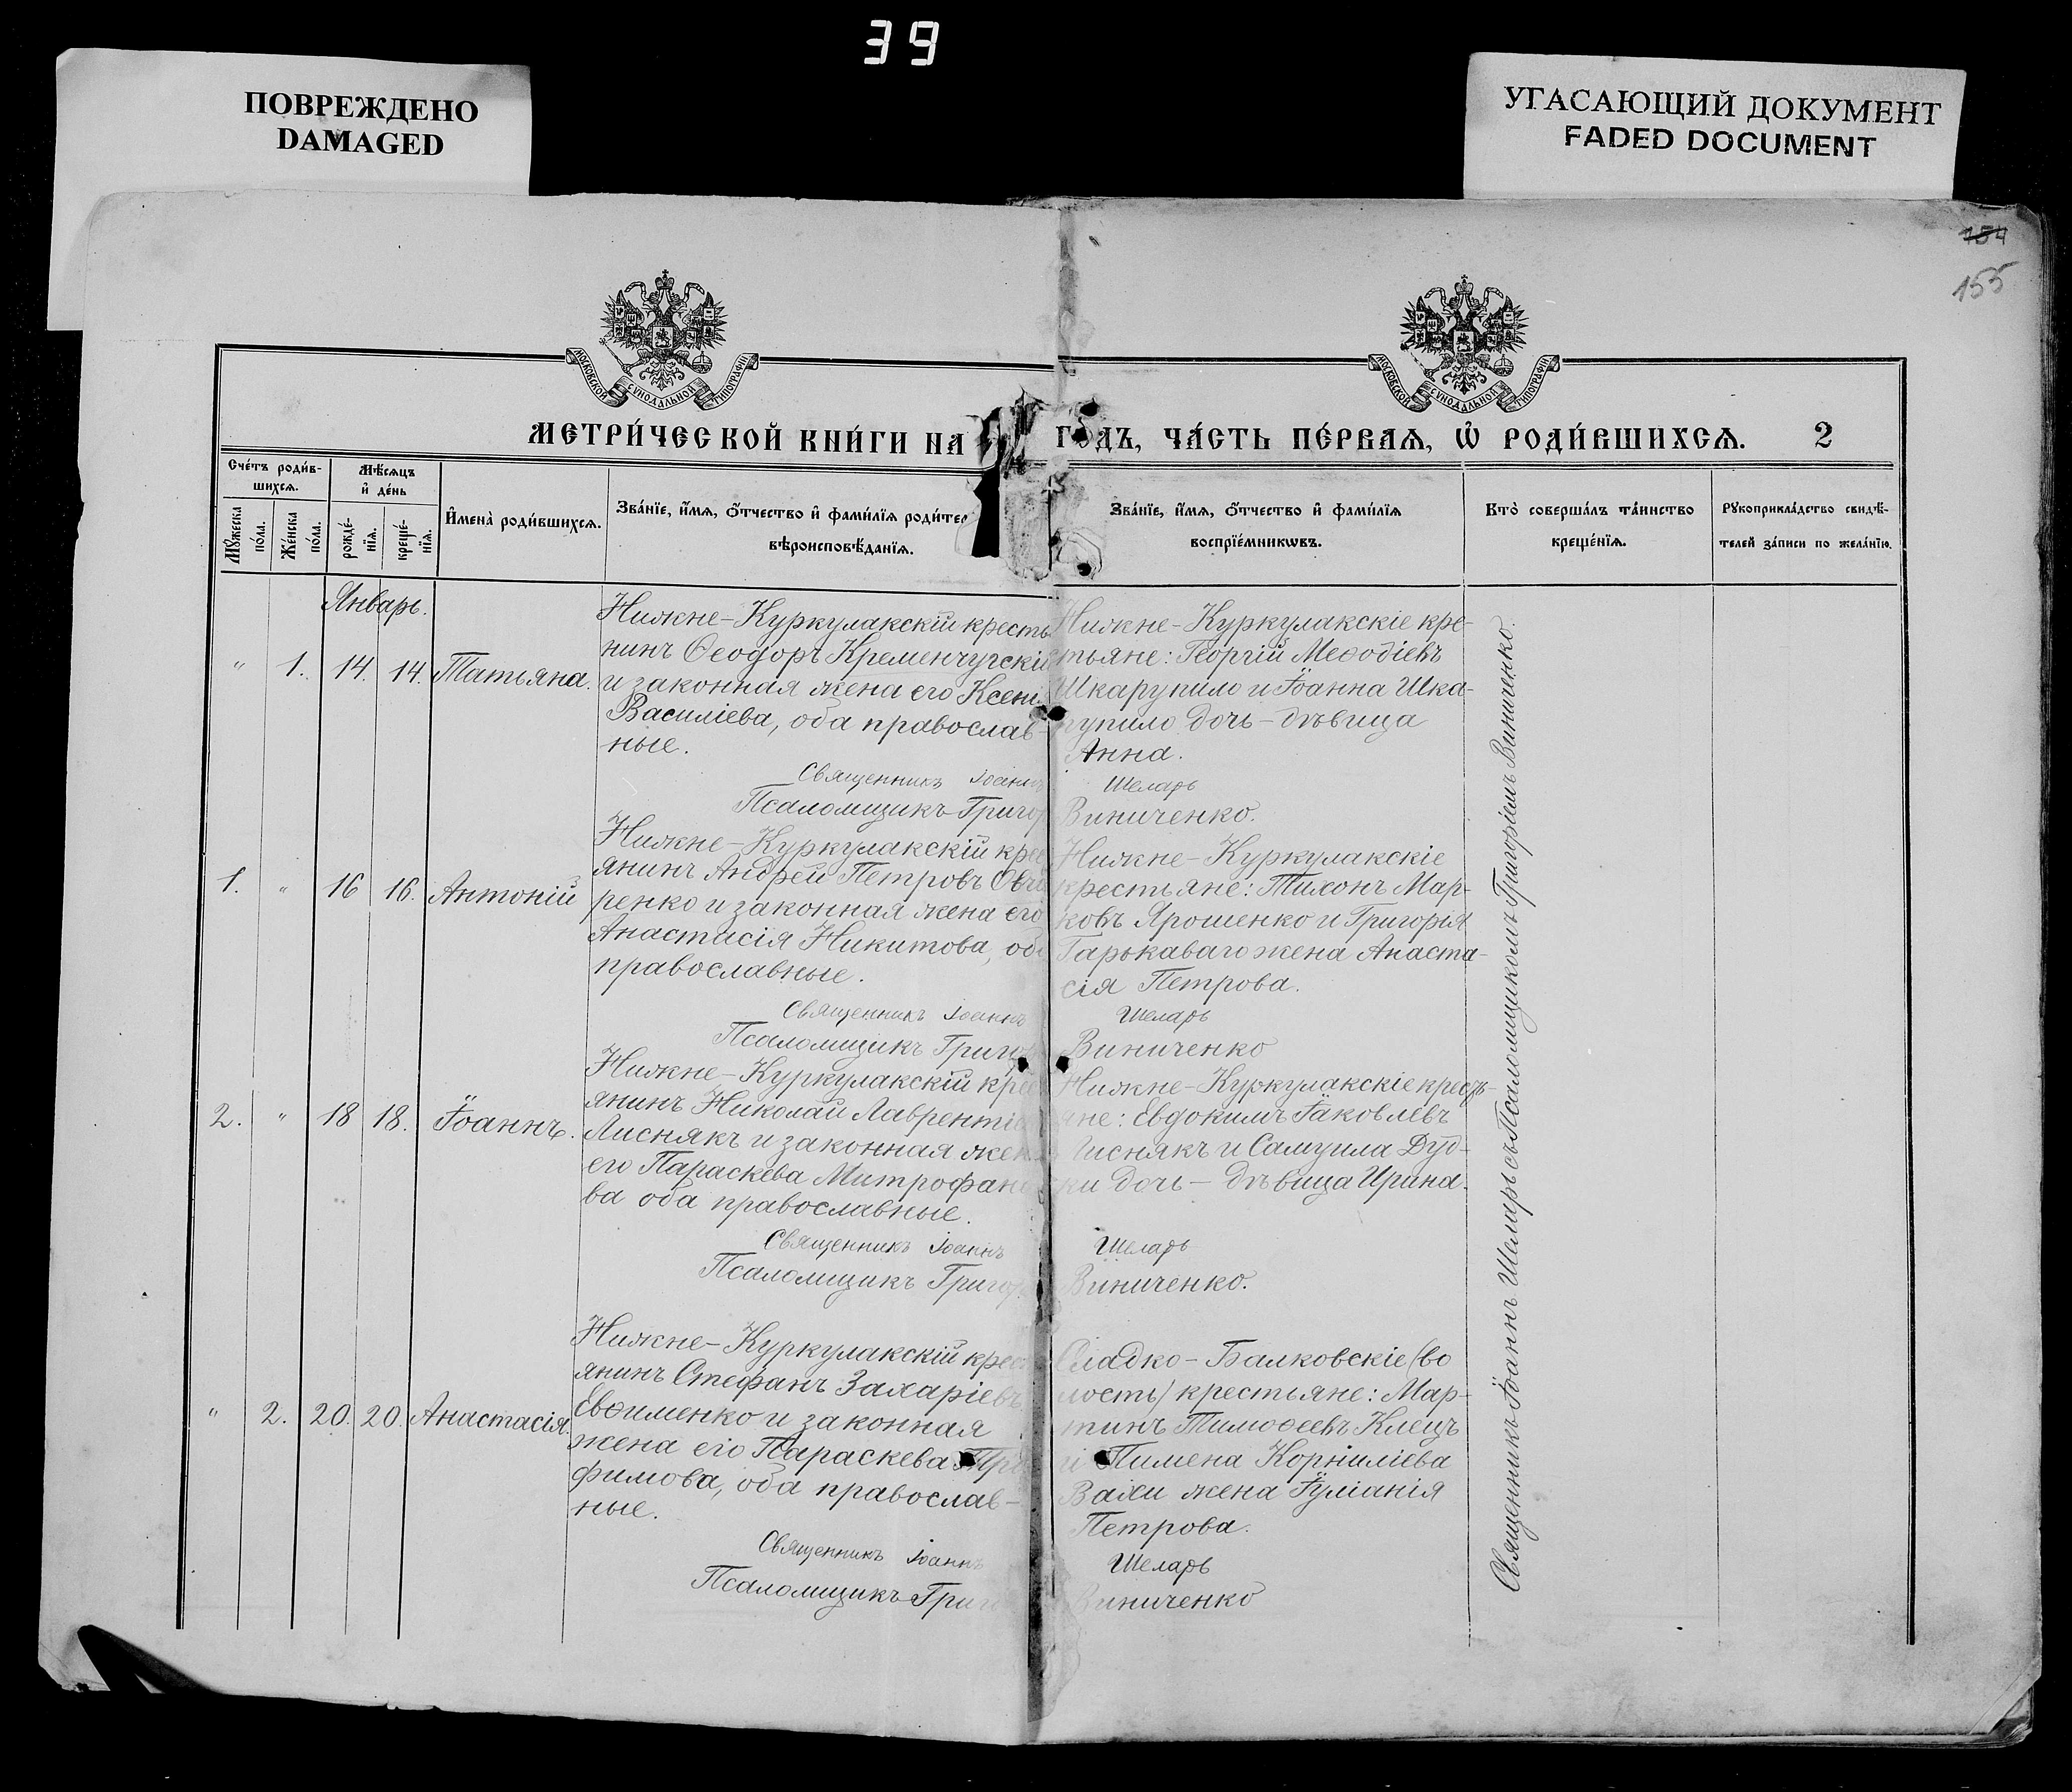 39
ПОВРЕЖДЕНО
DAMAGED
УГАСАЮЩИЙ ДОКУМЕНТ
FADED DOCUMENT
154
155
МОСКОВСКОЙ СѴНОДАЛЬНОЙ ТИПОГРАФІИ
МОСКОВСКОЙ СѴНОДАЛЬНОЙ ТИПОГРАФІИ
МЕТРИ́ЧЕСКОЙ КНИ́ГИ НА
ГОДЪ, ЧА́СТЬ ПЕ́РВАЯ, Ѿ РОДИ́ВШИХСЯ. 2
Сче́тъ роди́в-
шихся.
Мѣ́сяцъ
и де́нь
Мꙋ́жеска
по́ла.
Же́нска
по́ла.
рожде́-
нїя.
креще́-
нїя.
И҆мена̀ роди́вшихся.
Зва́нїе, и҆́мя, ѻ҆́тчество и҆ фами́лїя роди́тел
вѣроисповѣ́данїя.
Зва́нїе, и҆́мя, ѻ҆́тчество и҆ фами́лїя
воспрїе́мникѡвъ.
Кто̀ соверша́лъ та́инство
креще́нїя.
Рꙋкоприкла́дство свидѣ́-
телей за́писи по жела́нїю.
Январь.
" 1. 14. 14. Татьяна.
Нижне-Куркулакскій кресть
нинъ Ѳеодоръ Кременчугскій
и законная жена его Ксен
Василіева, оба православ-
ные.
Священникъ Іоаннъ
Псаломщикъ Григор
Нижне-Куркулакскіе кре-
тьяне: Георгій Меѳодіевъ
Шкарупило и Іоанна Шка-
рупило дочь - дѣвица
Анна.
Шеларь
Виниченко.
1. " 16 16. Антоній
Нижне-Куркулакскій крес
янинъ Андрей Петровъ Овча
ренко и законная жена его
Анастасія Никитова, оба
православные.
Священникъ Іоаннъ
Псаломщикъ Григор
Нижне-Куркулакскіе
крестьяне: Тихонъ Мар-
ковъ Ярошенко и Григорія
Гарькаваго жена Анаста-
сія Петрова.
Шеларь
Виниченко
2. " 18 18. Іоаннъ.
Нижне-Куркулакскій крес
янинъ Николай Лаврентіе
Лиснякъ и законная жена
его Параскева Митрофано
ва оба православные.
Священникъ Іоаннъ
Псаломщикъ Григор
Нижне-Куркулакскіе кресть-
яне: Евдокимъ Іаковлевъ
Лиснякъ и Самуила Дуд-
ки дочь - дѣвица Ирина.
Шеларь
Виниченко.
" 2. 20. 20. Анастасія.
Нижне-Куркулакскій крес
янинъ Стефанъ Захаріевъ
Евѳименко и законная
жена его Параскева Тро
фимова, оба православ-
ные.
Священникъ Іоаннъ
Псаломщикъ Григ
Сладко-Балковскіе (во
лость) крестьяне: Мар-
тинъ Тимоѳеевъ Клецъ
и Пимена Корниліева
Вахи жена Іуліанія
Петрова.
Шеларь
Виниченко
Священникъ Іоаннъ Шеларь съ Псаломщикомъ Григоріемъ Виниченко.